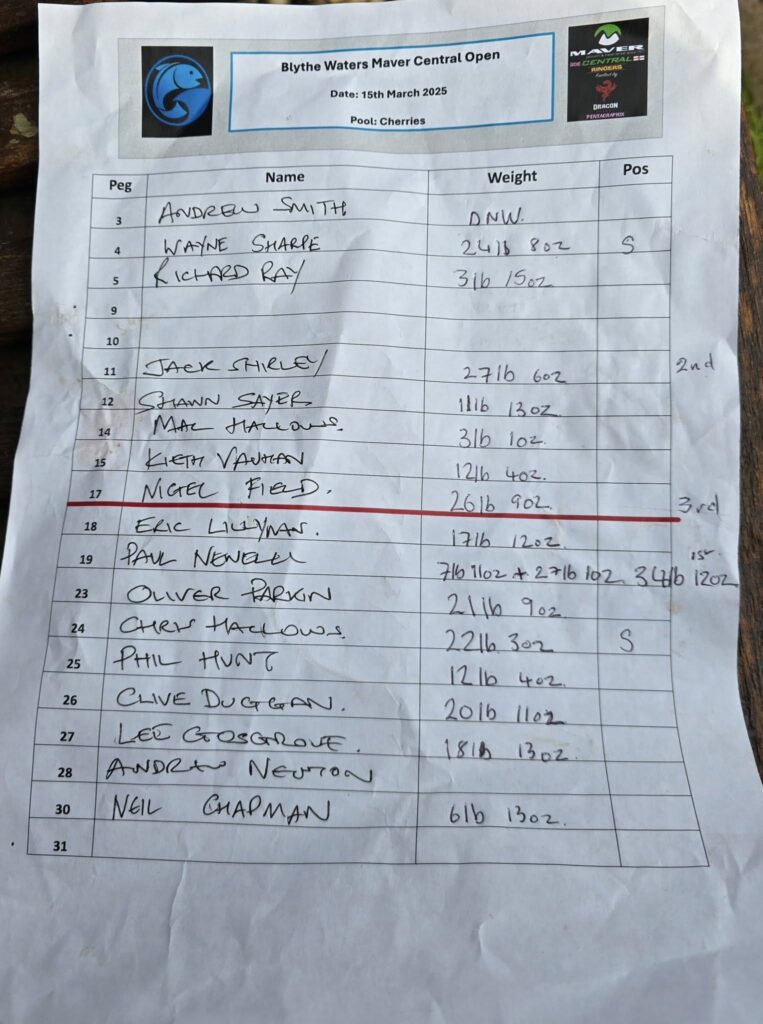 Blythe Waters Maver Central Open
Date: 15th March 2025
Pool: Cherries
MAVER
CENTRAL
RINGERS
DRAGON
PENTAGRAPHIX
Peg Name Weight Pos
3 ANDREW SMITH DNW.
4 WAYNE SHARPE 24lb 8oz S
5 RICHARD RAY 3lb 15oz
9
10
11 JACK SHIRLEY 27lb 6oz 2nd
12 SHAWN SAYER 11lb 13oz
14 MAL HALLOWS. 3lb 1oz.
15 KIETH VAUGHAN 12lb 4oz.
17 NIGEL FIELD. 26lb 9oz. 3rd
18 ERIC LILLYMAN. 17lb 12oz.
19 PAUL NEWELL 7lb 11oz + 27lb 1oz. 34lb 12oz 1st.
23 OLIVER PARKIN 21lb 9oz.
24 CHRIS HALLOWS. 22lb 3oz S
25 PHIL HUNT 12lb 4oz.
26 CLIVE DUGGAN. 20lb 11oz
27 LEE COSGROVE. 18lb 13oz.
28 ANDREW NEWTON
30 NEIL CHAPMAN 6lb 13oz.
31